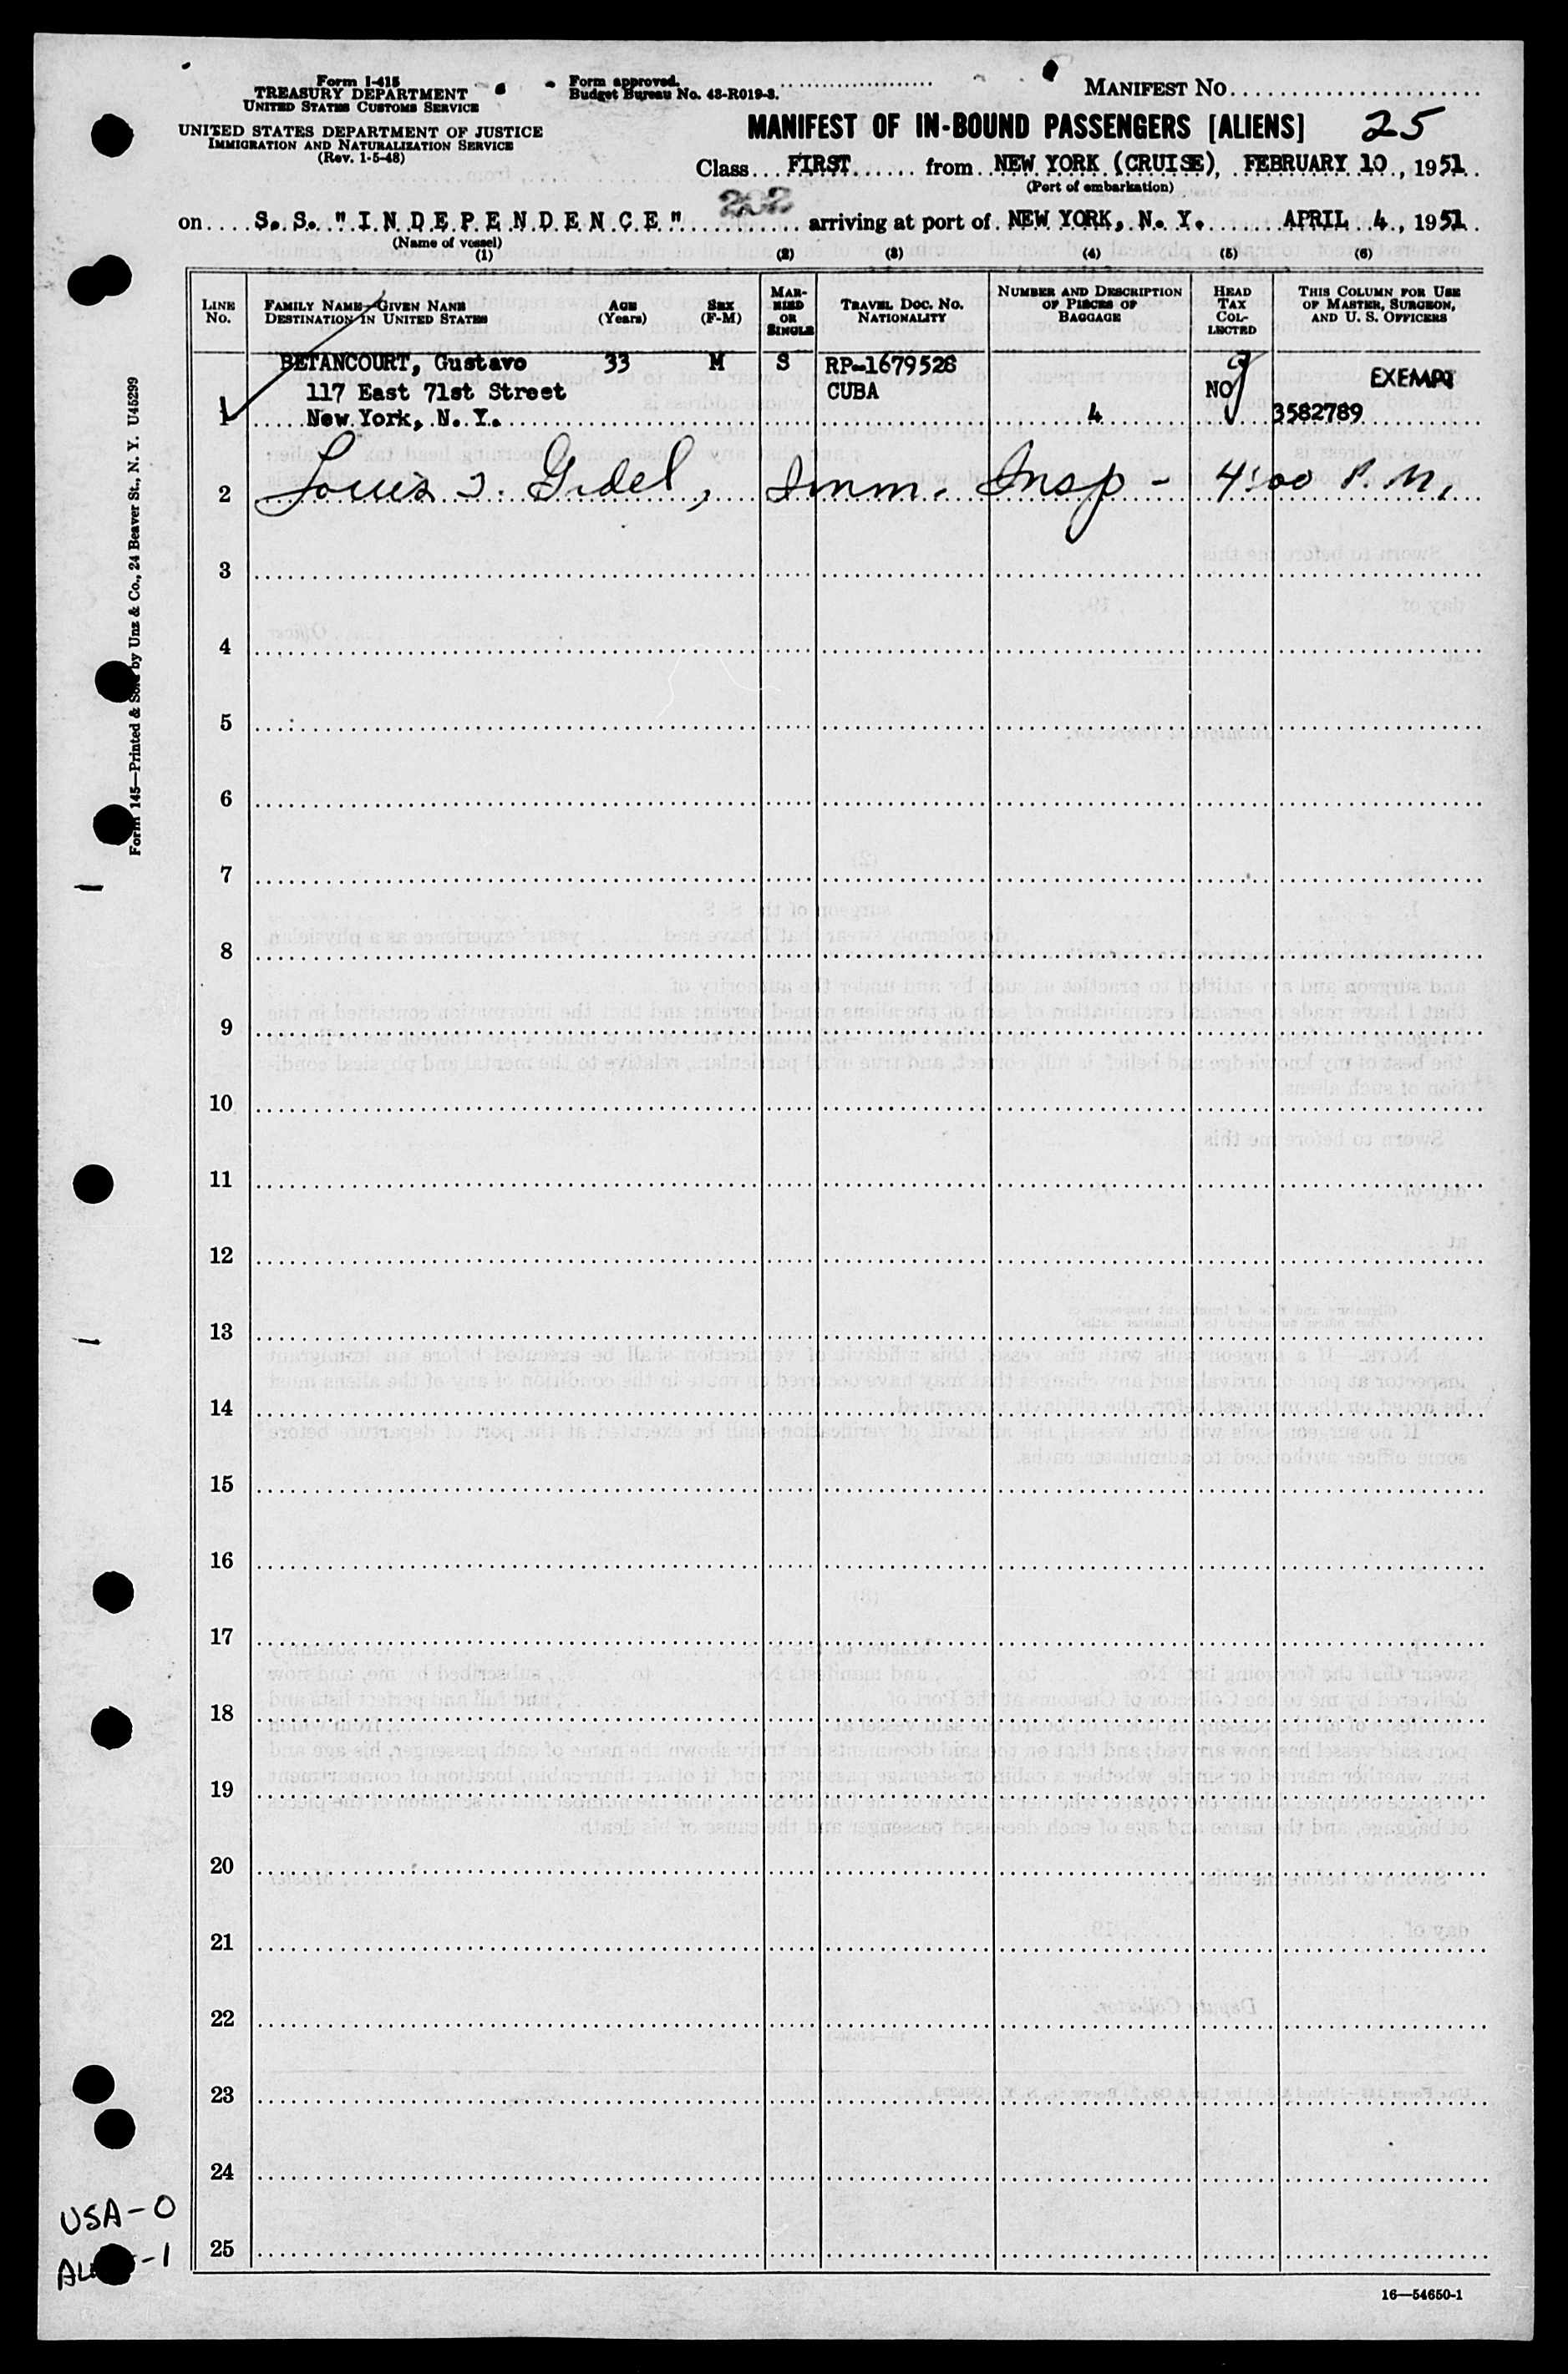 Form I-415
TREASURY DEPARTMENT
UNITED STATES CUSTOMS SERVICE
UNITED STATES DEPARTMENT OF JUSTICE
IMMIGRATION AND NATURALIZATION SERVICE
(Rev. 1-5-48)
Form approved.
Budget Bureau No. 43-R019-3.
MANIFEST NO.
MANIFEST OF IN-BOUND PASSENGERS [ALIENS] 25
Class FIRST from NEW YORK (CRUISE), FEBRUARY 10, 1951
(Port of embarkation)
on S. S. "I N D E P E N D E N C E" 202 arriving at port of NEW YORK, N. Y. APRIL 4, 1951
(Name of vessel)
(1) (2) (3) (4) (5) (6)
LINE NO.
FAMILY NAME—GIVEN NAME
DESTINATION IN UNITED STATES
AGE (Years)
SEX (F-M)
MARRIED OR SINGLE
TRAVEL DOC. NO.
NATIONALITY
NUMBER AND DESCRIPTION OF PIECES OF BAGGAGE
HEAD TAX COLLECTED
THIS COLUMN FOR USE OF MASTER, SURGEON, AND U. S. OFFICERS
BETANCOURT, Gustavo 33 M S RP-1679528
117 East 71st Street CUBA NO EXEMPT
1 New York, N. Y. 4 3582789
2 Louis J. Gidel, Imm. Insp - 4:00 P.M.
3
4
5
6
7
8
9
10
11
12
13
14
15
16
17
18
19
20
21
22
23
24
25
Form 145—Printed & Sold by Unz & Co., 24 Beaver St., N. Y. U45299
USA-0
-1
16—54650-1